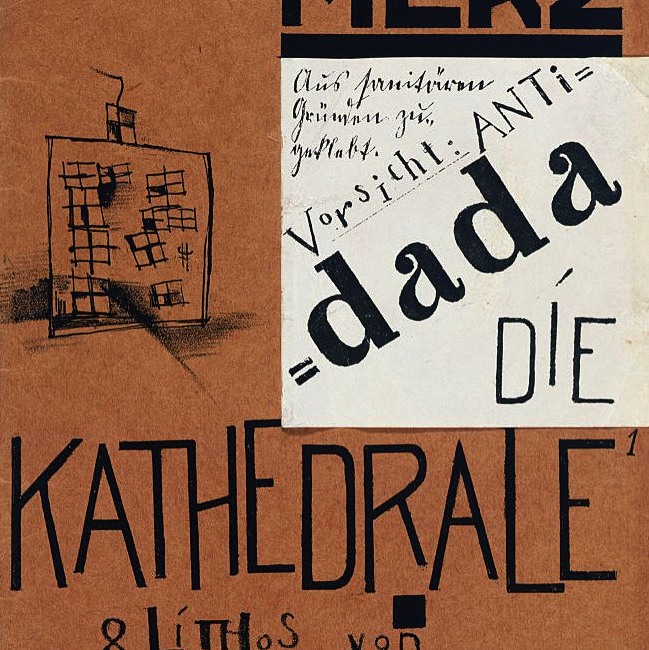 MERZ
Aus sanitären
Gründen zu-
geklebt.
Vorsicht: ANTi=
=dada
DÍE
KATHEDRALE 1
8 LíTHoS von